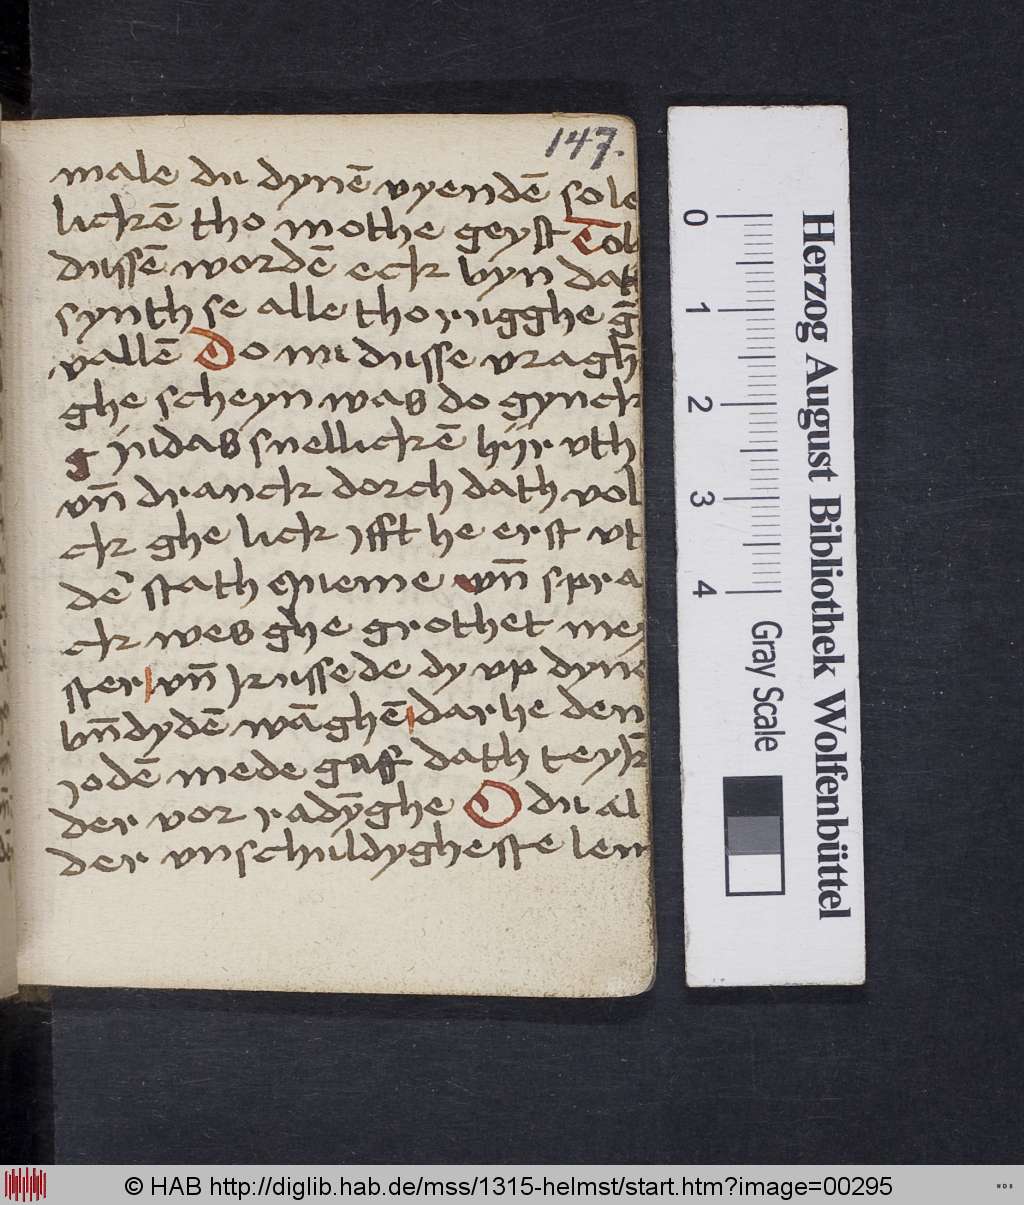 147.
male du dynē vyendē sole
lickē tho mothe geyst Tol
dussē wordē eck byn dat
synth se alle tho rugghe ḡ
vallē Do nu dusse vragh
ghe scheyn was do gynck
g judas snellickē hijr vth
vn̄ dranck dorch dath vol
ck ghe lick ifft he erst vt
dē stath queme vn̄ spra
ck wes ghe grothet mey
ster vn̄ kussede dy vp dyne
bn̄dydē wāghē dar he den
jodē mede gaff dath teyk
der vor radȳghe O du al
der vnschuldygheste lem
0 1 2 3 4
Gray Scale
Herzog August Bibliothek Wolfenbüttel
© HAB http://diglib.hab.de/mss/1315-helmst/start.htm?image=00295